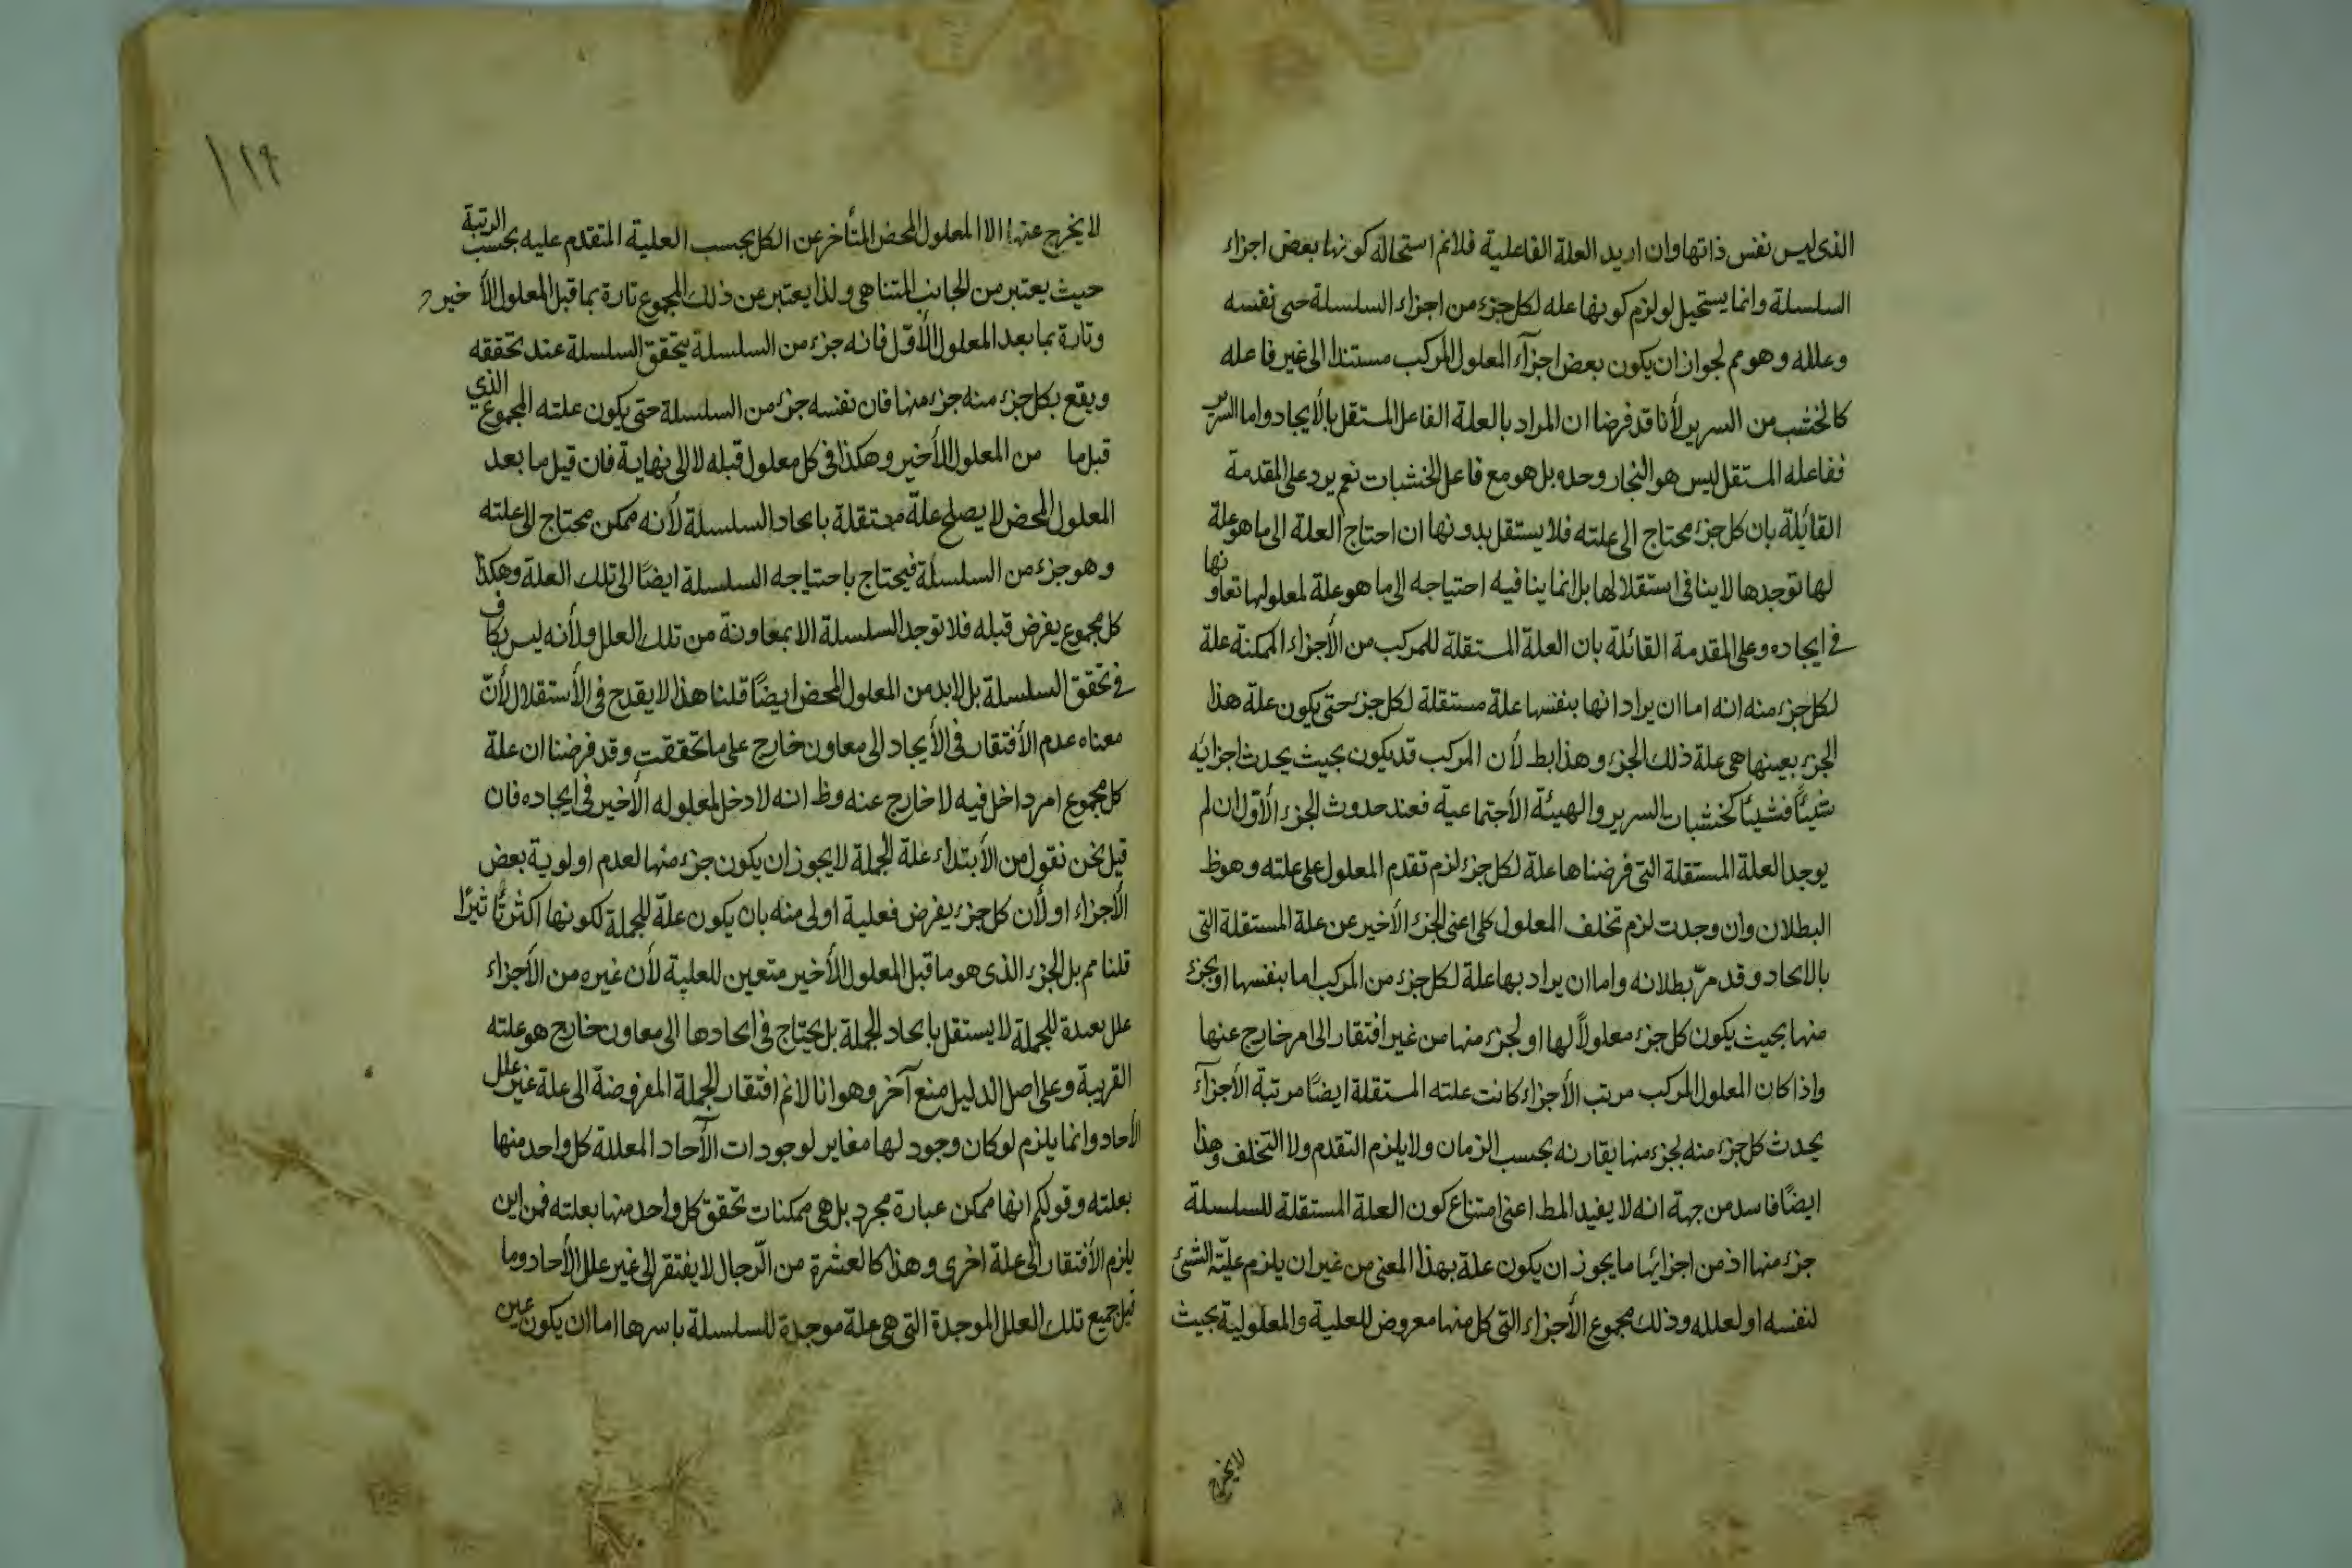 الذى ليس نفس ذاتها وان اريد العلة الفاعلية فلانم استحالة كونها بعض اجزاء
السلسلة وانما يستحيل لو لزم كونها علة لكل جزء من اجزاء السلسلة حتى نفسه
وعلله وهو مم لجواز ان يكون بعض اجزآء المعلول المركب مستندا الى غير فاعله
كالخشب من السرير لأنا قد فرضنا ان المراد بالعلة الفاعل المستقل بالأيجاد واما السرير
ففاعله المستقل ليس هو النجار وحده بل هو مع فاعل الخشبات نعم يرد على المقدمة
القائلة بان كل جزء محتاج الى علته فلا يستقل بدونها ان احتاج العلة الى ما هو علة
لها توجدها لا ينافى استقلالها بل انما ينافيه احتياجه الى ما هو علة لمعلولها تعاونها
فى ايجاده وعلى المقدمة القائلة بان العلة المستقلة للمركب من الأجزاء الممكنة علة
لكل جزء منه انه اما ان يراد انها بنفسها علة مستقلة لكل جزء حتى يكون علة هذا
الجزء بعينها هى علة ذلك الجزء وهذا بط لأن المركب قد يكون بحيث يحدث اجزائه
شيئًا فشيئًا كخشبات السرير والهيئة الأجتماعية فعند حدوث الجزء الأول ان لم
يوجد العلة المستقلة التى فرضناها علة لكل جزء لزم تقدم المعلول على علته وهو ظ
البطلان وان وجدت لزم تخلف المعلول كلى اعنى الجزء الأخير عن علة المستقلة التى
بالايحاد وقد مرّ بطلانه واما ان يراد بها علة لكل جزء من المركب اما بنفسها او بجزء
منها بحيث يكون كل جزء معلولاً لها او لجزء منها من غير افتقار الى امر خارج عنها
واذا كان المعلول المركب مرتب الأجزاء كانت علته المستقلة ايضًا مرتبة الأجزآء
يحدث كل جزء منه بجزء منها يقارنه بحسب الزمان ولا يلزم التقدم ولا التخلف وهذا
ايضًا فاسد من جهة انه لا يفيد المط اعنى امتناع كون العلة المستقلة للسلسلة
جزء منها اذ من اجزائها ما يجوز ان يكون علة بهذا المعنى من غير ان يلزم عليّة الشئ
لنفسه او لعلله وذلك مجموع الأجزاء التى كل منها معروض للعلية والمعلولية بحيث
لا يخرج
١٢٩
لا يخرج عنها الا المعلول المحض المتأخر عن الكل بحسب العلية المتقدم عليه بحسب الرتبة
حيث يعتبر من الجانب المتناهى ولذا يعتبر عن ذلك المجموع تارة بما قبل المعلول الأخير
وتارة بما بعد المعلول الأوّل فانه جزء من السلسلة يتحقق السلسلة عند تحققه
ويقع بكل جزء منه جزء منها فان نفسه جزء من السلسلة حتى يكون علته المجموع الذي
قبل ما من المعلول الأخير وهكذا فى كل معلول قبله لا الى نهاية فان قيل ما بعد
المعلول المحض لا يصلح علّة مستقلة بايحاد السلسلة لأنه ممكن محتاج الى علته
وهو جزء من السلسلة فيحتاج باحتياجه السلسلة ايضًا الى تلك العلة وهكذا
كل مجموع يفرض قبله فلا توجد السلسلة الا بمعاونة من تلك العلل ولأنه ليس بكاف
فى تحقق السلسلة بل لابد من المعلول المحض ايضًا قلنا هذا لا يقدح فى الأستقلال لأنّ
معناه عدم الأفتقار فى الأيجاد الى معاون خارج على ما تحققت وقد فرضنا ان علة
كل مجموع امر داخل فيه لا خارج عنه وظ انه لا دخل لمعلوله الأخير فى ايجاده فان
قيل نحن نقول من الأبتداء علة الجملة لا يجوز ان يكون جزء منها لعدم اولوية بعض
الأجزاء او لأن كل جزء يفرض فعلية اولى منه بان يكون علة للجملة لكونها اكثر تأثيرًا
قلنا مم بل الجزء الذى هو ما قبل المعلول الأخير متعين للعلية لأن غيره من الأجزاء
علل بعيدة للجملة لا يستقل بايحاد الجملة بل يحتاج فى ايحادها الى معاون خارج هو علته
القريبة وعلى اصل الدليل منع آخر وهو انا لانم افتقار الجملة المفروضة الى علة غير علل
الأحاد وانما يلزم لو كان وجود لها مغاير لوجودات الآحاد المعللة كل واحد منها
بعلته وقولكم انها ممكن عبارة مجرد بل هى ممكنات تحقق كل واحد منها بعلته فمن اين
يلزم الأفتقار الى علة اخرى وهذا كالعشرة من الرّجال لا يفتقر الى غير علل الأحاد وما
قيل جميع تلك العلل الموجدة التى هى علة موجدة للسلسلة باسرها اما ان يكون عين